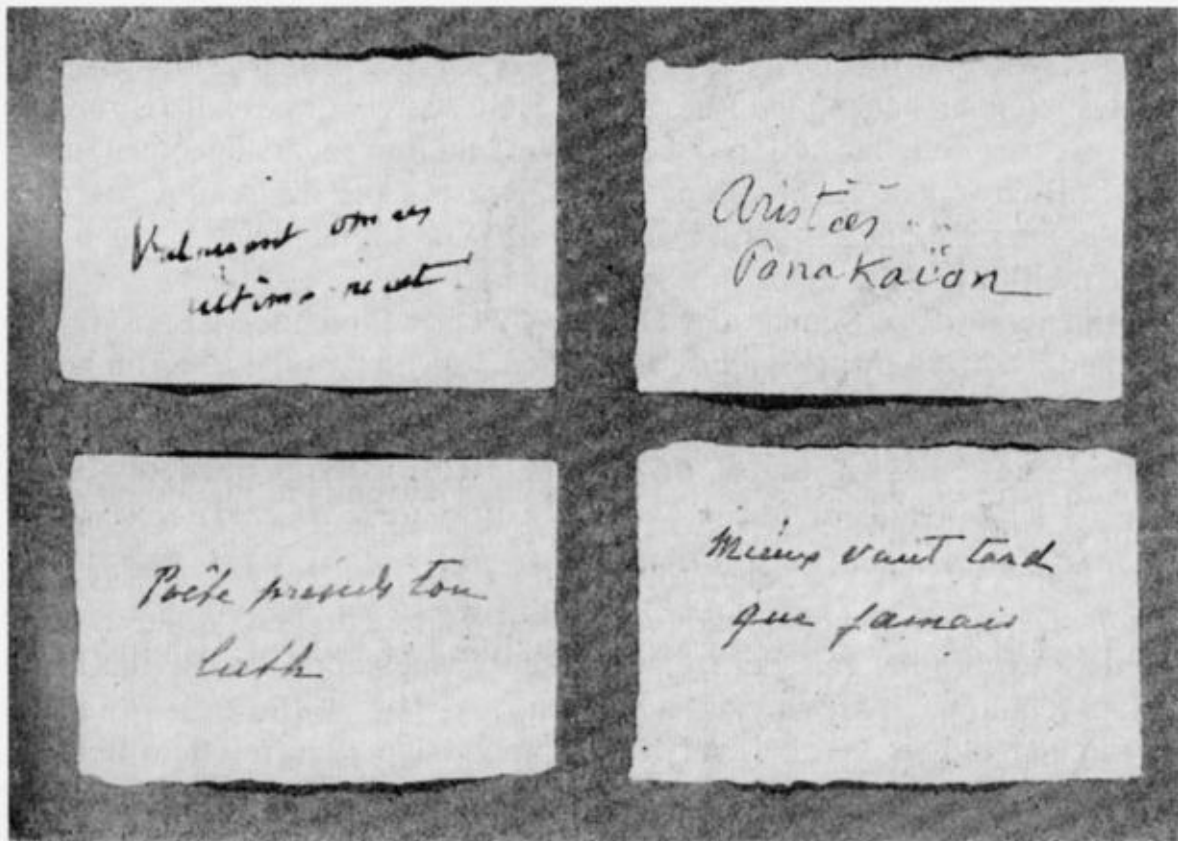 Vulnerant omnes
ultima necat
Aristăs
PanaKaïon
Poête prends ton
luth
Mieux vaut tard
que jamais